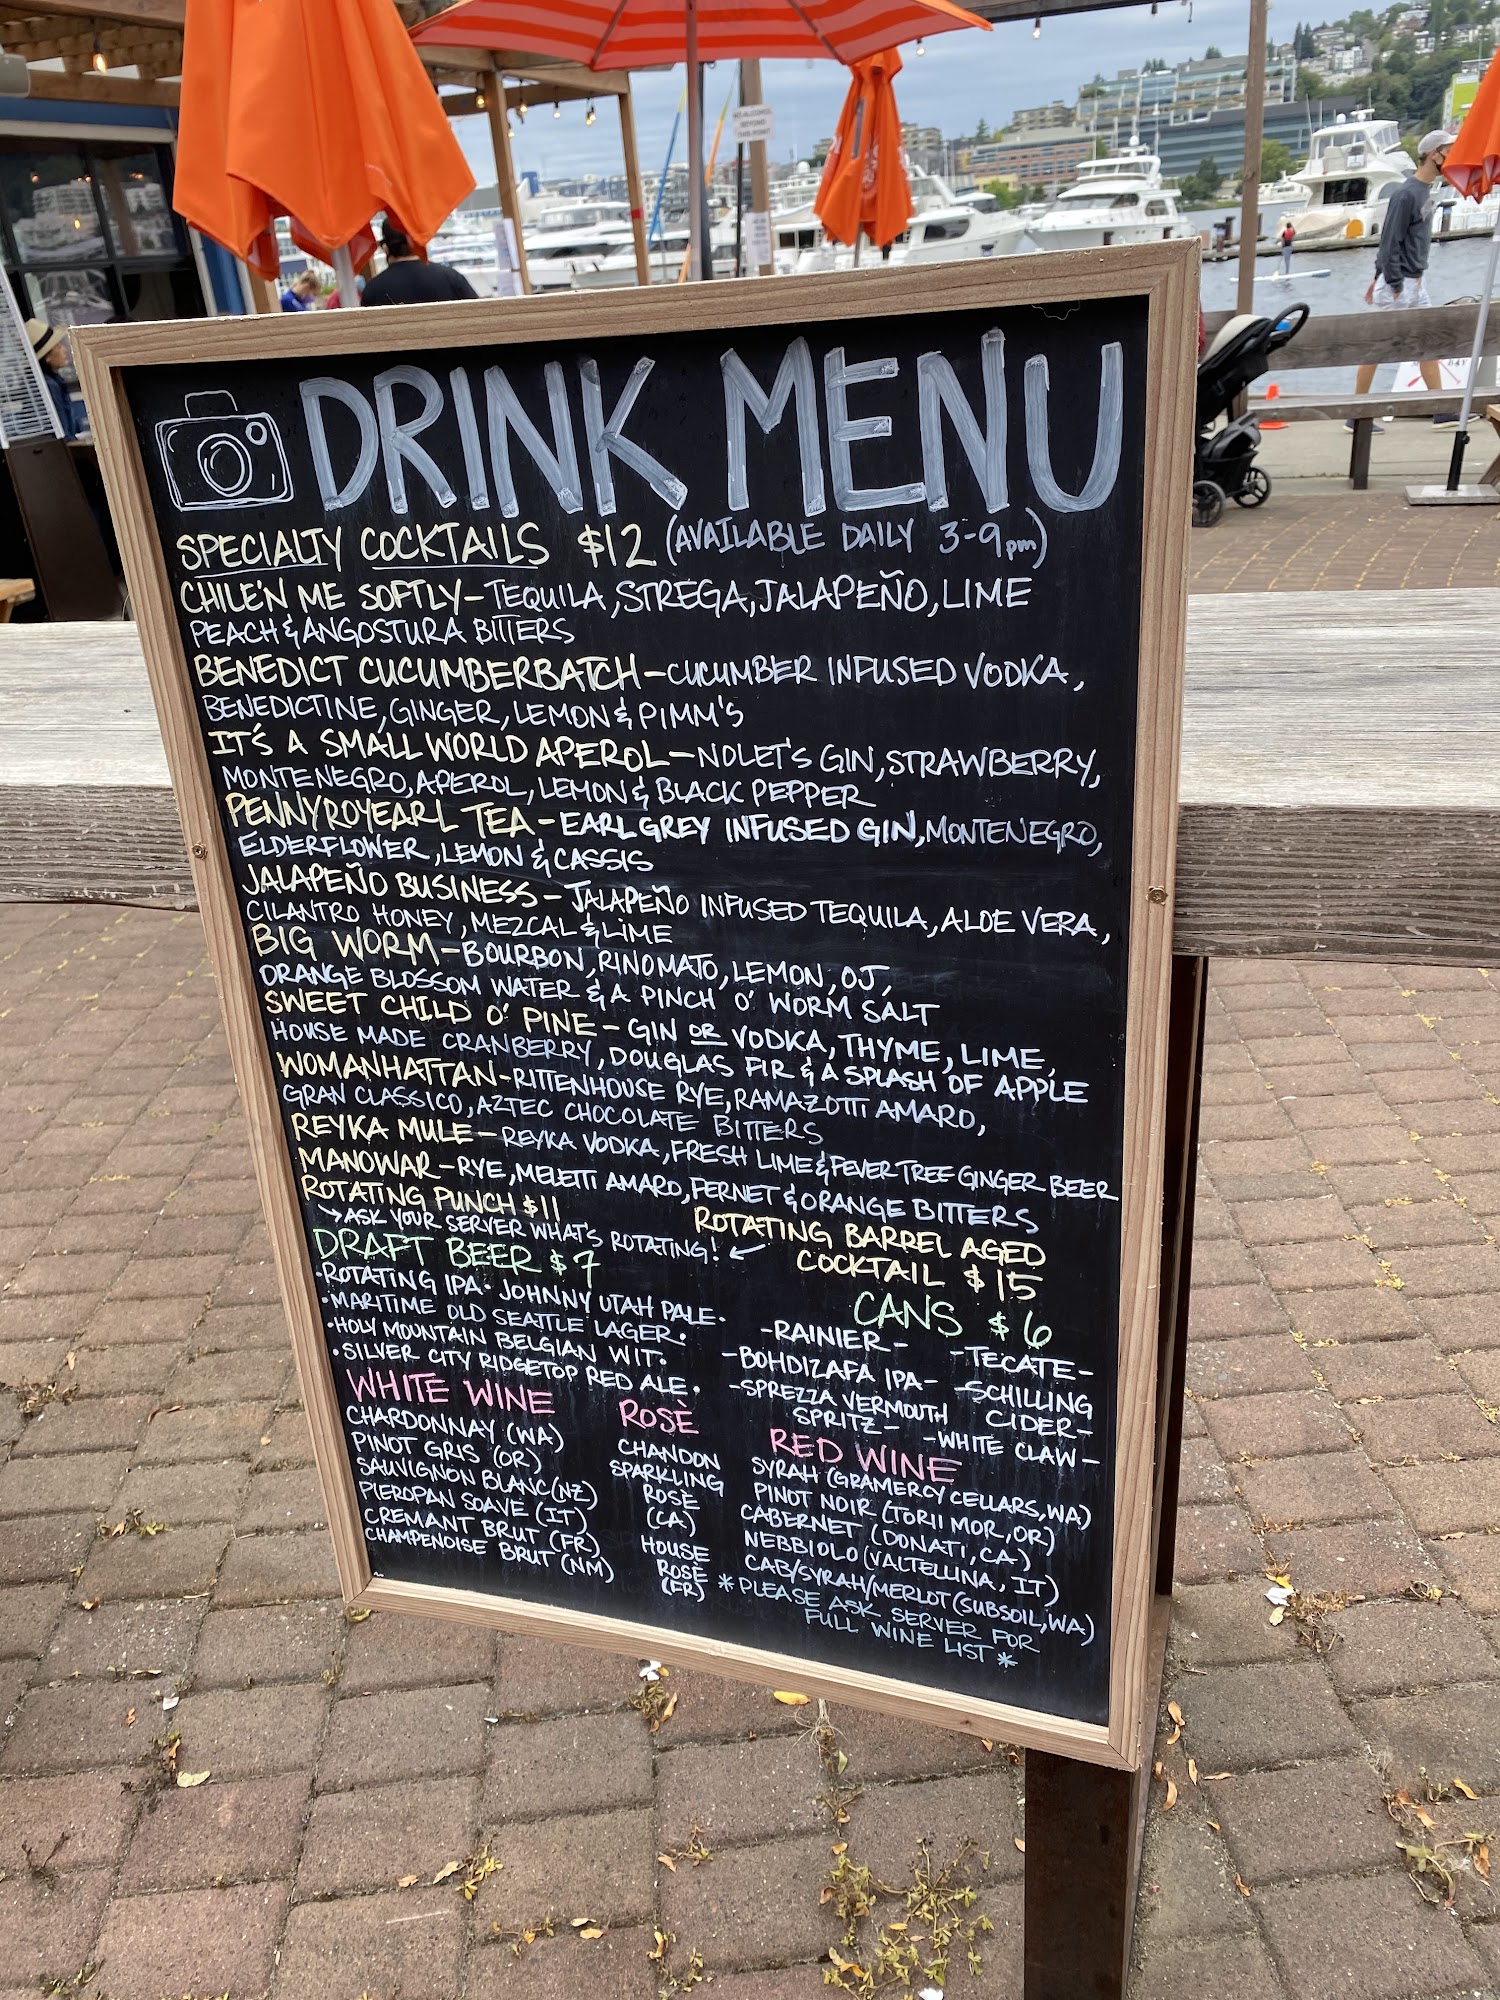 DRINK MENU
SPECIALTY COCKTAILS $12 (AVAILABLE DAILY 3-9pm)
CHILE'N ME SOFTLY-TEQUILA, STREGA, JALAPEÑO, LIME
PEACH & ANGOSTURA BITTERS
BENEDICT CUCUMBERBATCH-CUCUMBER INFUSED VODKA,
BENEDICTINE, GINGER, LEMON & PIMM'S
IT'S A SMALL WORLD APEROL-NOLET'S GIN, STRAWBERRY,
MONTENEGRO, APEROL, LEMON & BLACK PEPPER
PENNYROYEARL TEA-EARL GREY INFUSED GIN, MONTENEGRO,
ELDERFLOWER, LEMON & CASSIS
JALAPEÑO BUSINESS-JALAPEÑO INFUSED TEQUILA, ALOE VERA,
CILANTRO HONEY, MEZCAL & LIME
BIG WORM-BOURBON, RINOMATO, LEMON, OJ,
ORANGE BLOSSOM WATER & A PINCH O' WORM SALT
SWEET CHILD O' PINE-GIN OR VODKA, THYME, LIME,
HOUSE MADE CRANBERRY, DOUGLAS FIR & A SPLASH OF APPLE
WOMANHATTAN-RITTENHOUSE RYE, RAMAZOTTI AMARO,
GRAN CLASSICO, AZTEC CHOCOLATE BITTERS
REYKA MULE-REYKA VODKA, FRESH LIME & FEVER TREE GINGER BEER
MANOWAR-RYE, MELETTI AMARO, FERNET & ORANGE BITTERS
ROTATING PUNCH $11
→ASK YOUR SERVER WHAT'S ROTATING! ←
ROTATING BARREL AGED
COCKTAIL $15
DRAFT BEER $7
•ROTATING IPA• JOHNNY UTAH PALE•
•MARITIME OLD SEATTLE LAGER•
•HOLY MOUNTAIN BELGIAN WIT•
•SILVER CITY RIDGETOP RED ALE•
CANS $6
-RAINIER- -TECATE-
-BOHDIZAFA IPA- -SCHILLING
CIDER-
-SPREZZA VERMOUTH
SPRITZ- -WHITE CLAW-
WHITE WINE
CHARDONNAY (WA)
PINOT GRIS (OR)
SAUVIGNON BLANC (NZ)
PIEROPAN SOAVE (IT)
CREMANT BRUT (FR)
CHAMPENOISE BRUT (NM)
ROSÈ
CHANDON
SPARKLING
ROSÈ
(CA)
HOUSE
ROSÈ
(FR)
RED WINE
SYRAH (GRAMERCY CELLARS, WA)
PINOT NOIR (TORII MOR, OR)
CABERNET (DONATI, CA)
NEBBIOLO (VALTELLINA, IT)
CAB/SYRAH/MERLOT (SUBSOIL, WA)
*PLEASE ASK SERVER FOR
FULL WINE LIST*